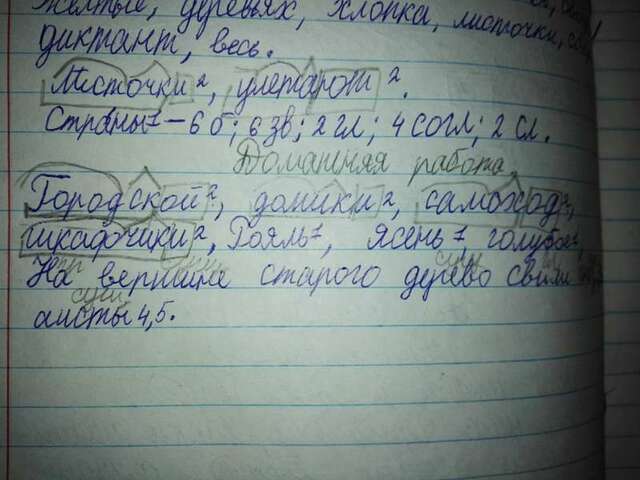 жёлтые, деревьях, хлопка, листочки,
диктант, весь.
Листочки², улетают².
Страны¹ – 6 б; 6 зв; 2 гл; 4 согл; 2 сл.
Домашняя работа.
Городской², домики², самоход²,
шкафчики², Рояль¹, ясень¹, голубое¹,
На вершине старого дерево свили
аисты 4,5.